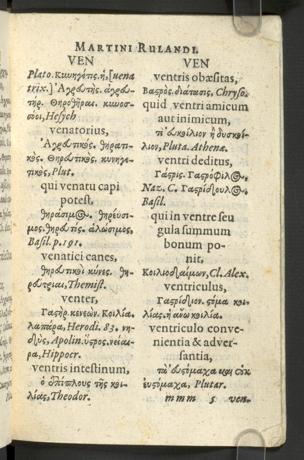 MARTINI RULANDI.
VEN
Plato. Κυνηγέτις, ἡ, [uena
trix.] Ἀγρώτης. ἀγρω-
τήρ. Θηροθήραι. κυνοσ-
σόοι, Hesych
venatorius,
Ἀγρωτικὸς. θηρατι-
κὸς. Θηρωτικὸς. κυνηγε-
τικὸς, Plut.
qui venatu capi
potest,
θηράσιμος. θηρεύσι-
μος. θηρωτὶς. ἁλώσιμος,
Basil. p. 191.
venatici canes,
θηρωτικοὶ κύνες. θη-
Themist.
venter,
Γαστὴρ. κενεών. Κοιλία.
λαπάρα, Herodi. 83. νη-
δὺς, Apolin. ὕστρος. νείαι-
ρα, Hippocr.
ventris intestinum,
ὁ ἐπίπλους τῆς κοι-
λίας, Theodor.
VEN
ventris obæsitas,
διάτασις, Chryso.
quid ventri amicum
aut inimicum,
τί εὐκοίλιον ἢ δυσκοί-
λιον, Pluta. Athenæ.
ventri deditus,
Γάστρις. Γαστρόφιλος,
Naz. C. Γαστρίδουλος,
Basil.
qui in ventre seu
gula summum
bonum po-
nit,
Κοιλιοδαίμων, Cl. Alex.
ventriculus,
Γαστρίδιον. στόμα κοι-
λίας. ἡ ἄνω κοιλία.
ventriculo conve-
nientia & adver-
santia,
τὰ εὐστόμαχα καὶ οὐκ
εὐστόμαχα, Plutar.
mmm 5 ven-